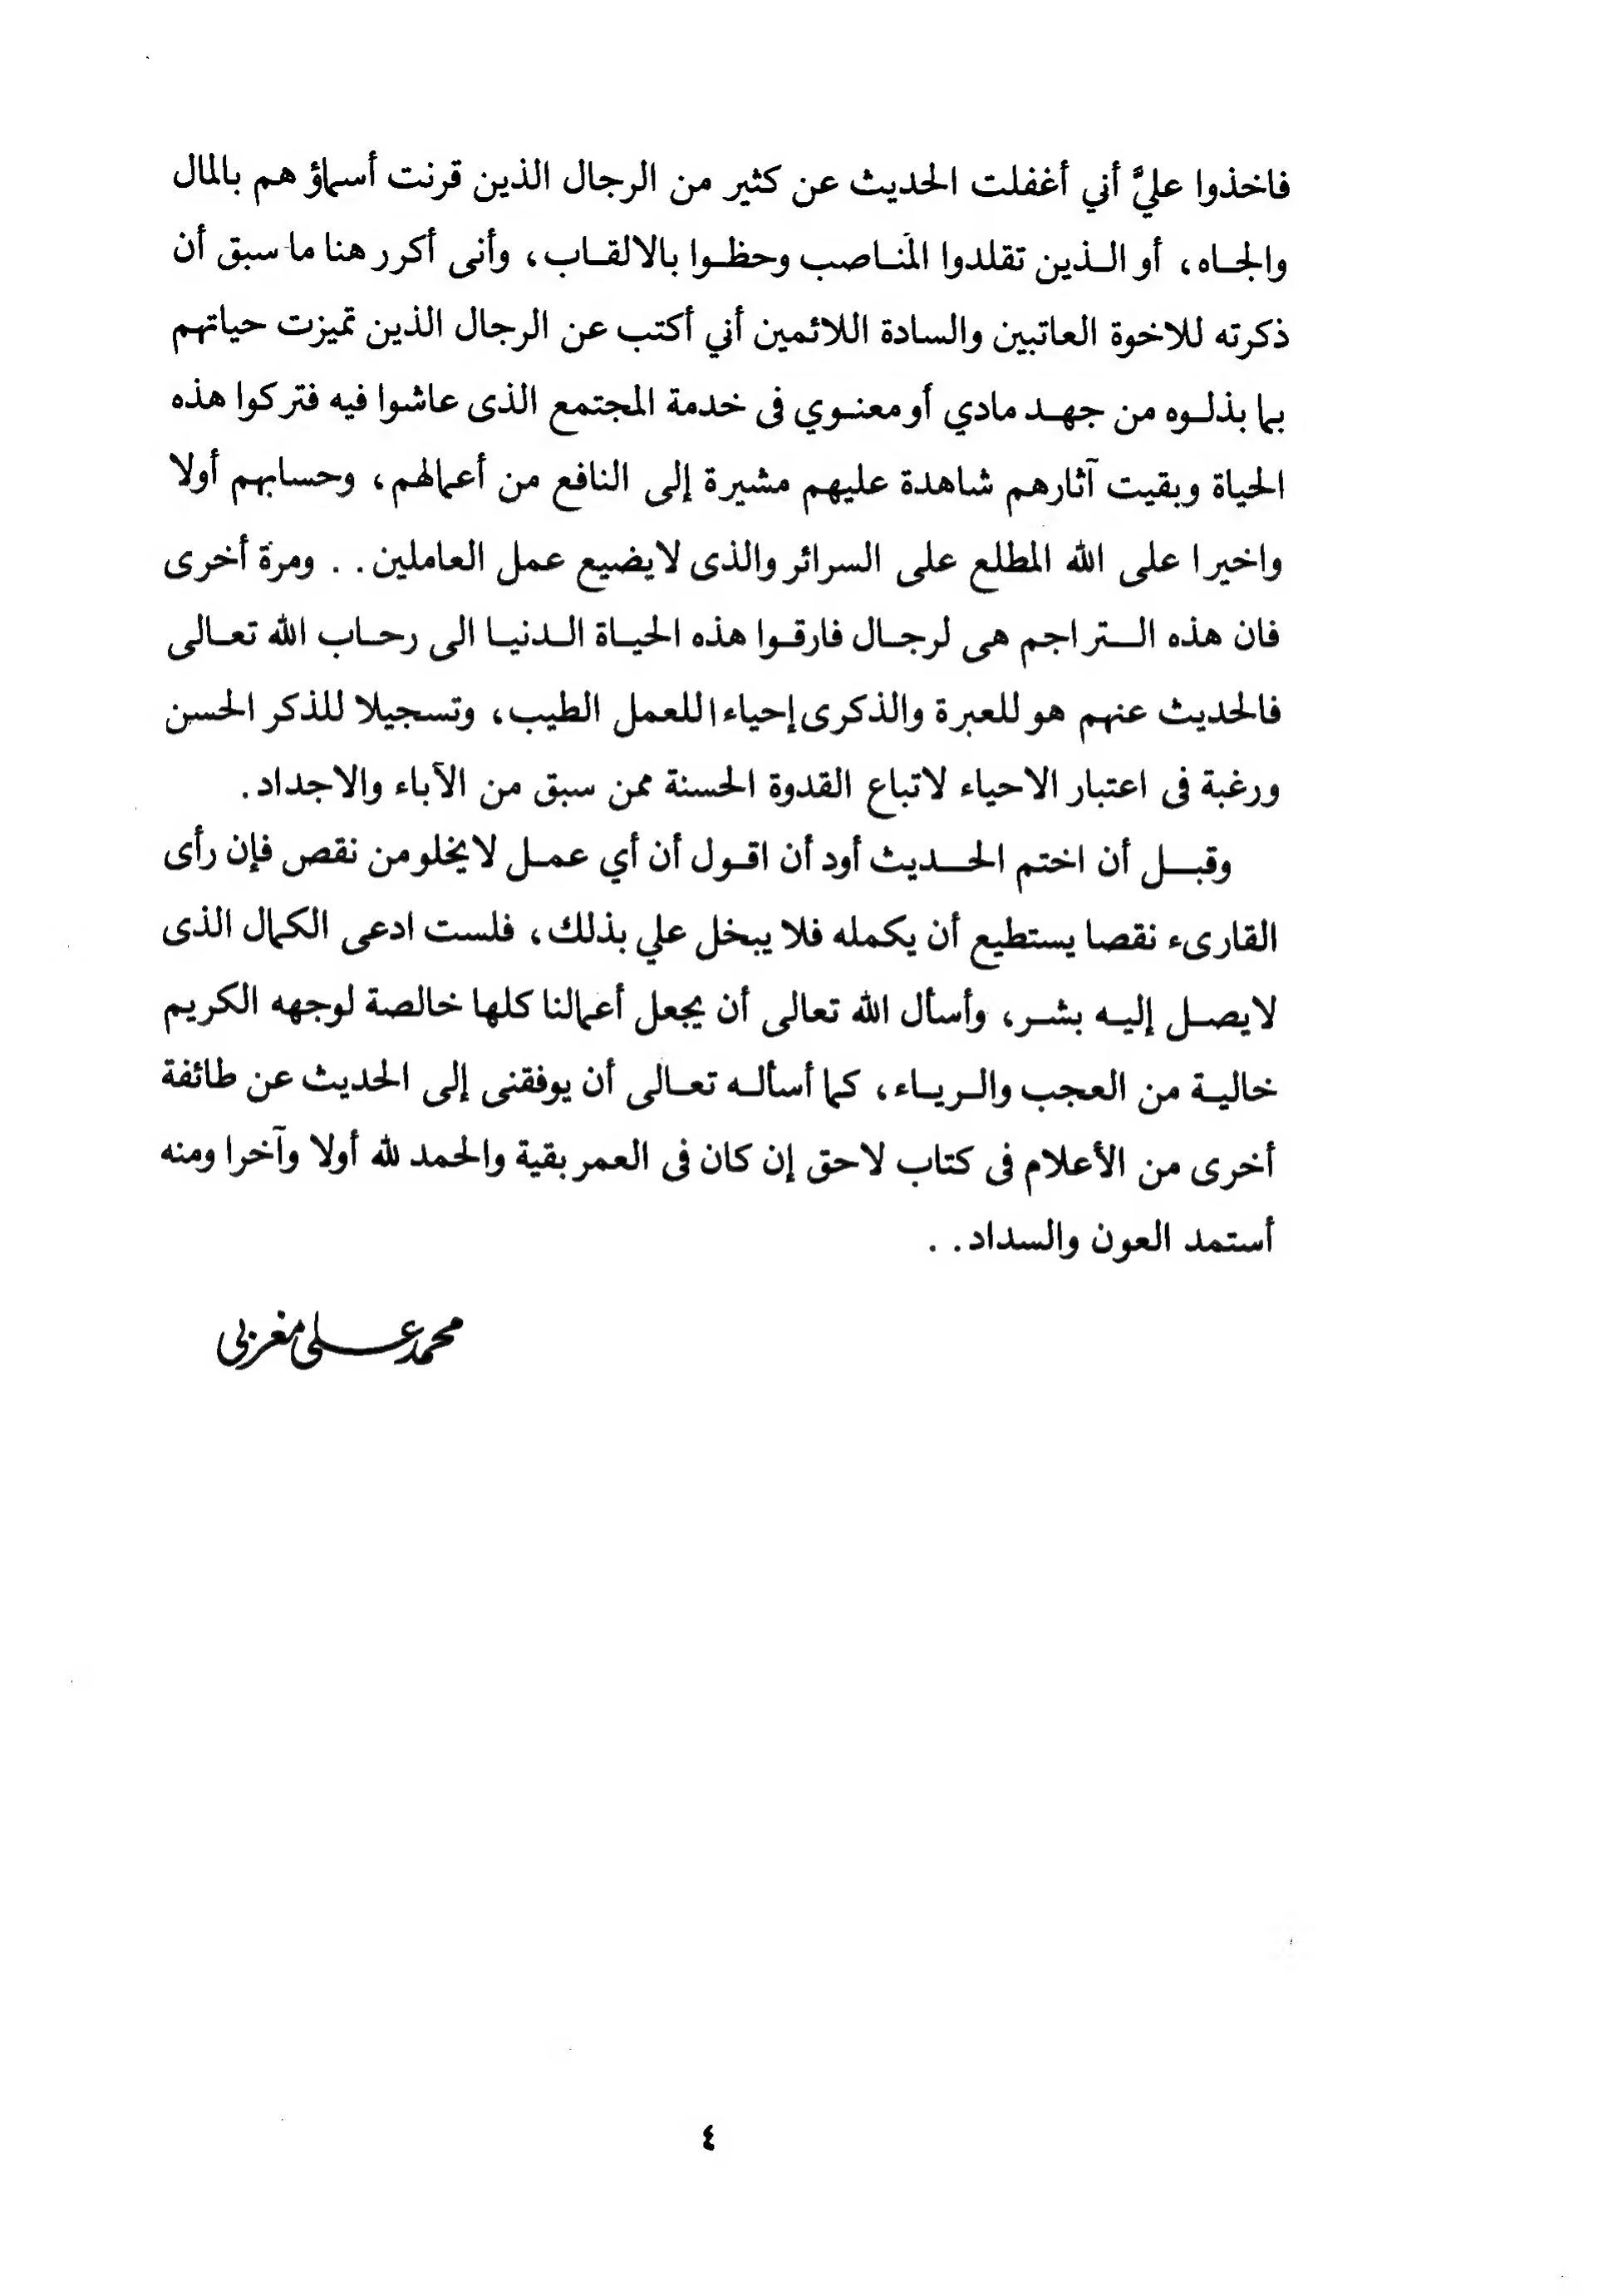 فاخذوا عليَّ أني أغفلت الحديث عن كثير من الرجال الذين قرنت أسماؤ هم بالمال
والجاه، أو الذين تقلدوا المناصب وحظوا بالالقاب، وأنى أكرر هنا ما سبق أن
ذكرته للاخوة العاتبين والسادة اللائمين أني أكتب عن الرجال الذين تميزت حياتهم
بما بذلوه من جهد مادي أو معنوي فى خدمة المجتمع الذى عاشوا فيه فتركوا هذه
الحياة وبقيت آثارهم شاهدة عليهم مشيرة إلى النافع من أعمالهم، وحسابهم أولا
واخيرا على الله المطلع على السرائر والذى لايضيع عمل العاملين. . ومرة أخرى
فان هذه التراجم هى لرجال فارقوا هذه الحياة الدنيا الى رحاب الله تعالى
فالحديث عنهم هو للعبرة والذكرى إحياءا للعمل الطيب، وتسجيلا للذكر الحسن
ورغبة فى اعتبار الاحياء لاتباع القدوة الحسنة ممن سبق من الآباء والاجداد.
وقبل أن اختم الحديث أود أن اقول أن أي عمل لايخلو من نقص فإن رأى
القارىء نقصا يستطيع أن يكمله فلا يبخل علي بذلك، فلست ادعى الكمال الذى
لايصل إليه بشر، وأسأل الله تعالى أن يجعل أعمالنا كلها خالصة لوجهه الكريم
خالية من العجب والرياء، كما أسأله تعالى أن يوفقنى إلى الحديث عن طائفة
أخرى من الأعلام فى كتاب لاحق إن كان فى العمر بقية والحمد لله أولا وآخرا ومنه
أستمد العون والسداد. .
محمد على مغربى
٤